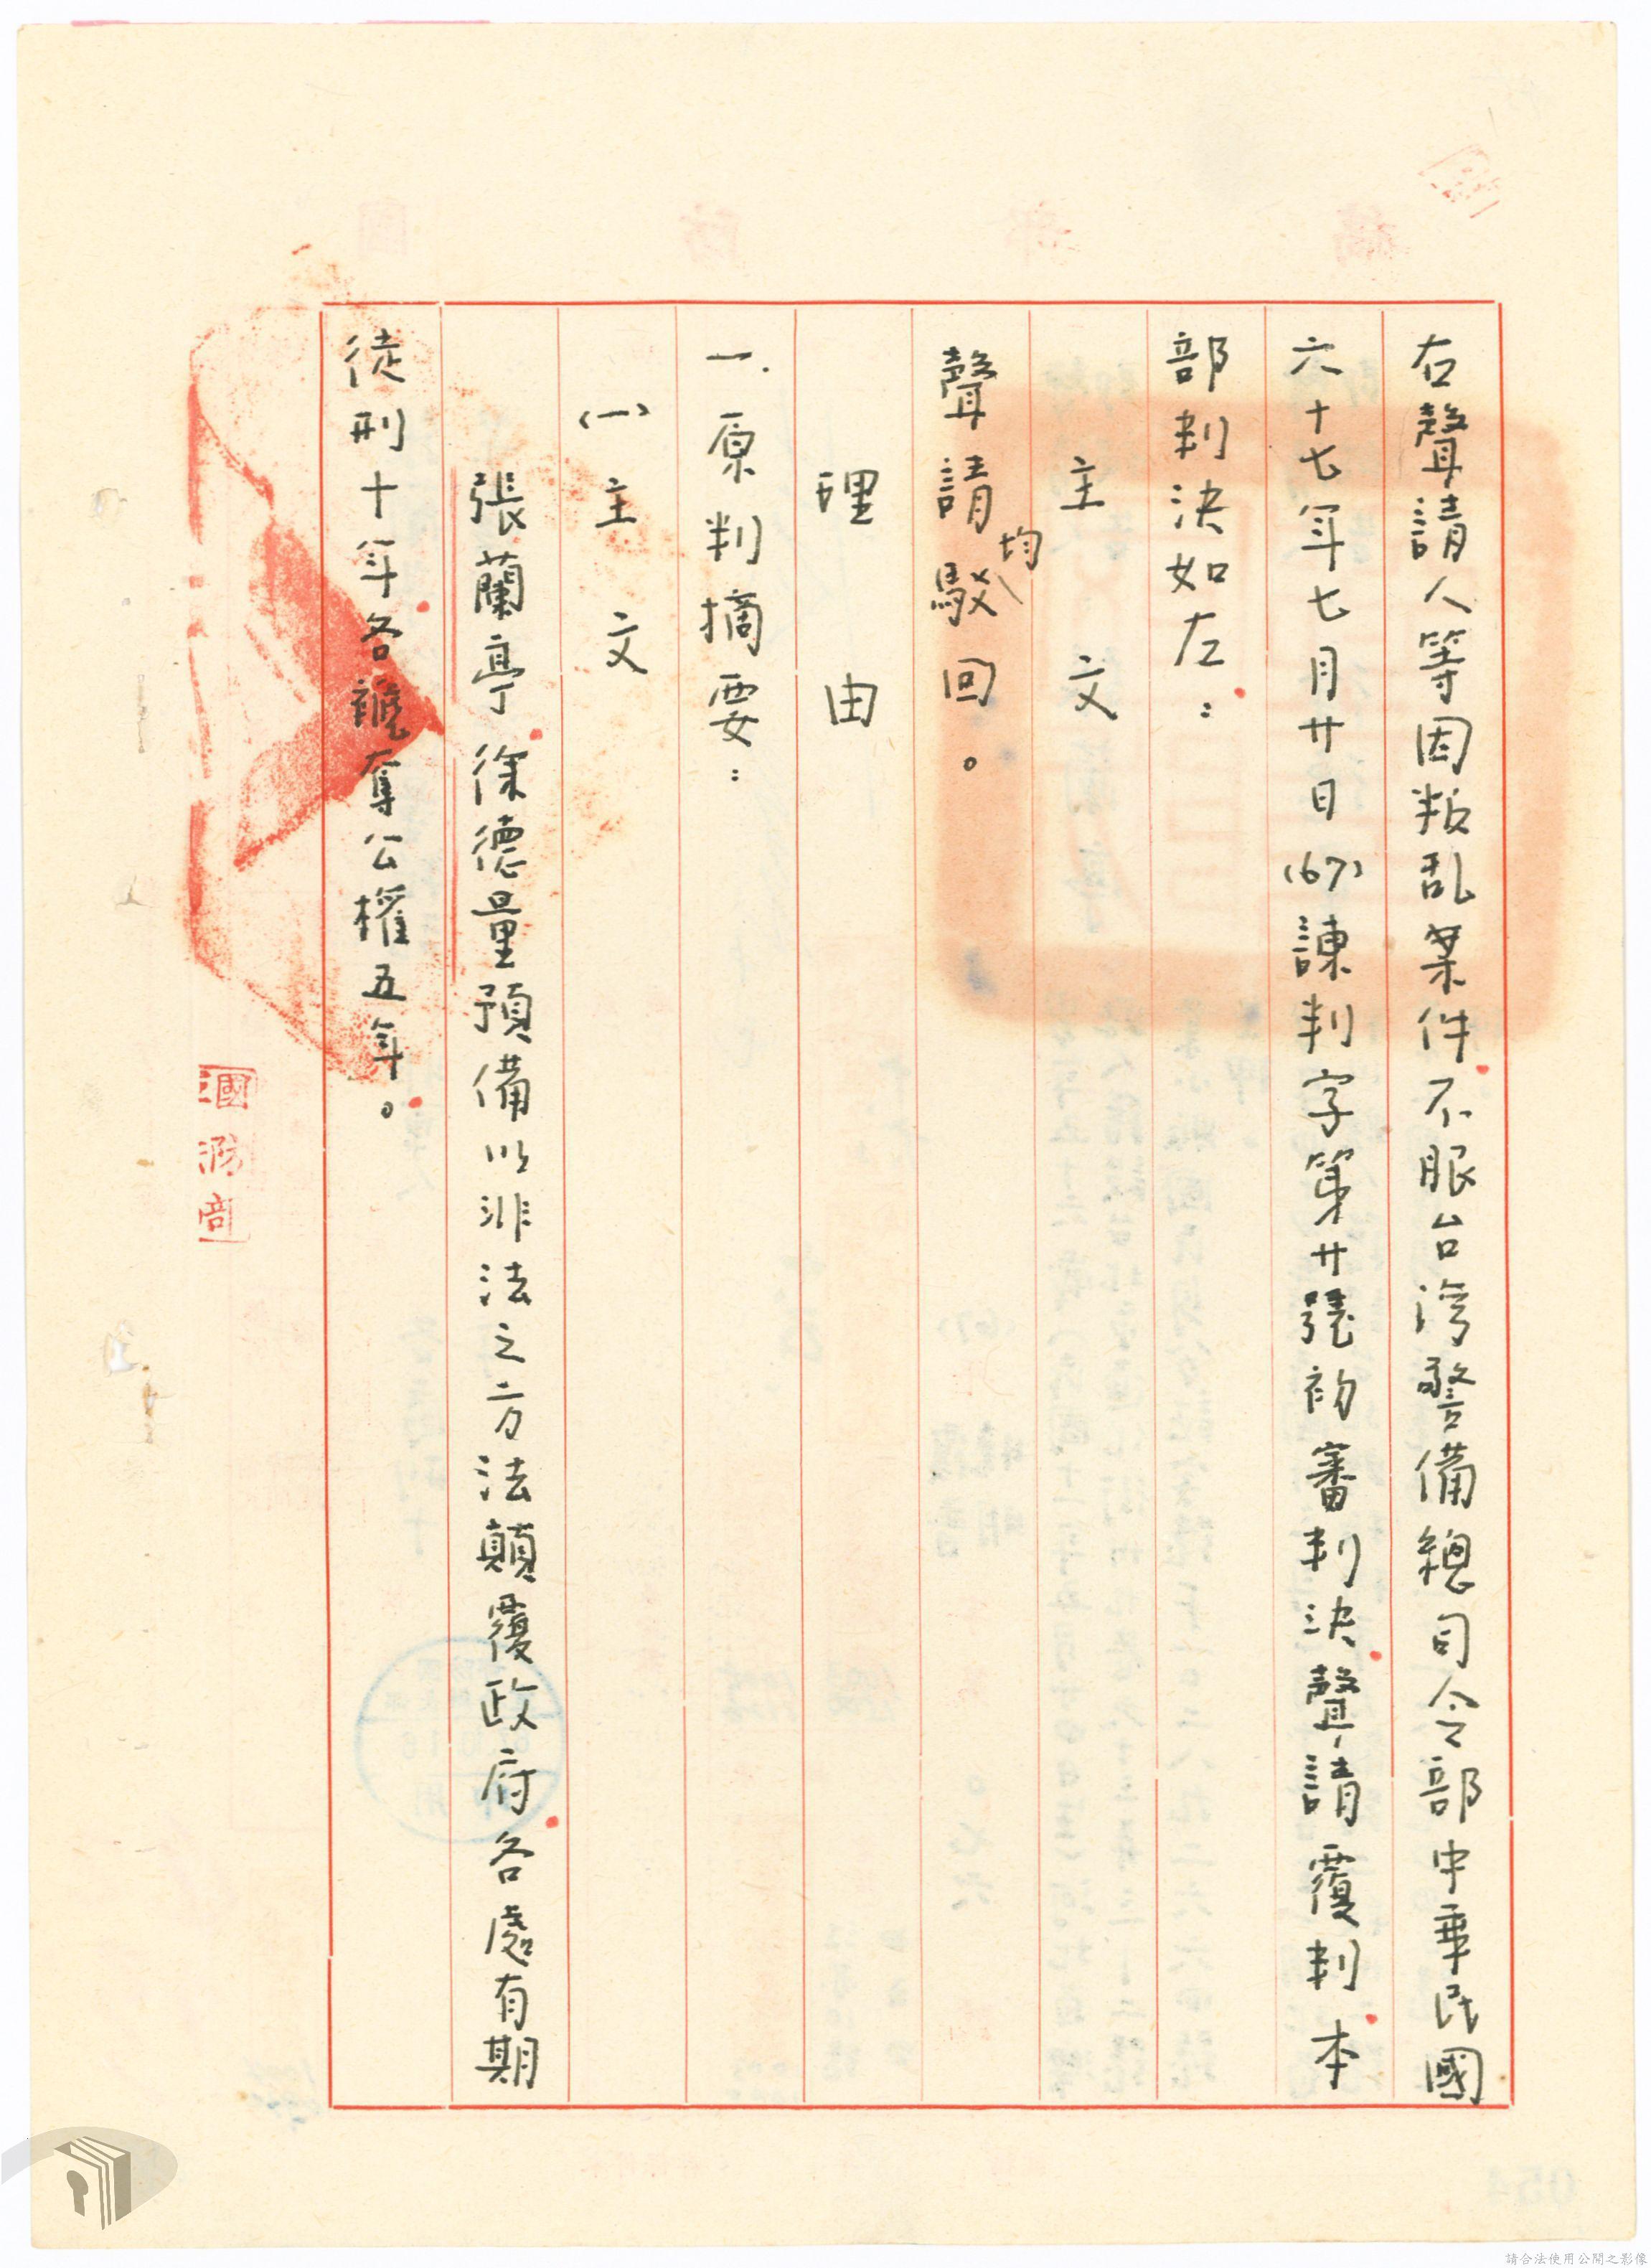 右聲請人等因叛乱案件不服台湾警備總司令部中華民國
六十七年七月廿日(67)諫判字第廿號初審判決聲請覆判本
部判決如左：
主文
聲請均駁回。
理由
一.原判摘要：
(一)主文
張蘭亭徐德量預備以非法之方法顛覆政府各處有期
徒刑十年各褫奪公權五年。
請合法使用公開之影像